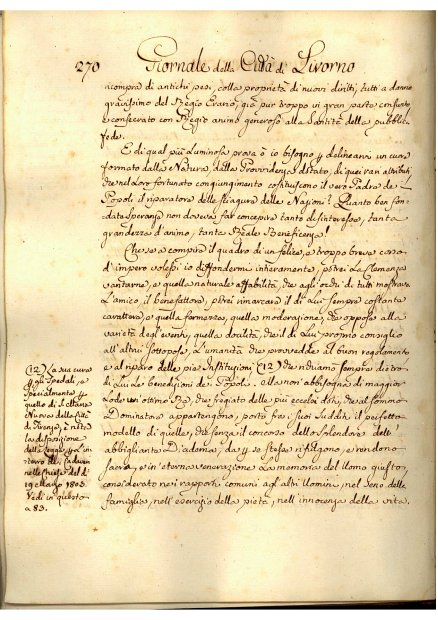 270 Giornale della Città di Livorno
ricompra di antichi pesi, colla proprietà di nuovi diritti; tutti a danno
gravissimo del Regio Erario, già pur troppo in gran parte consunto
e consecrato con Regio animo generoso alla Santità della pubblica
fede.
E di qual più luminosa prova ò io bisogno p delineare un cuore
formato dalla Natura, dalla Provvidenza ditato, di quei rari attributi
che nel loro fortunato congiungimento costituiscono il vero Padre de
Popoli il riparatore delle sciagure delle Nazioni? Quanto ben fon-
data speranza non doveva far concepire tanto disinteresse, tanta
grandezza d'animo, tanta Reale Beneficenza!
Che se a compire il quadro di un felice, e troppo breve corso
d'impero volessi io diffondermi interamente, potrei la clemenza
vantarne, e quella naturale affabilità, che agli occhi di tutti mostrava
L'amico, il benefattore, potrei rimarcare il di Lui sempre costante
carattere, e quella fermezza, quella moderazione, che oppose alla
varietà degl'eventi, quella docilità, che il di Lui proprio consiglio
all'altrui sottopose, L'umanità che provvedde al buon regolamento
e al riparo delle pie Istituzioni (12) che riduconsi sempre dietro
di Lui Le benedizioni de' Popoli. Ma non abbisogna di maggior
Lode un ottimo Re, che fregiato delle più eccelse doti, che al sommo
Dominatore appartengono, porta fra i suoi Sudditi il perfetto
modello di quelle, che senza il concorso dello splendore dell'
abbigliante Diadema, da p se stesse rifulgono, e rendono
sacra, e in eterna venerazione La memoria del Uomo giusto,
considerato nei rapporti comuni agl'altri Uomini, nel seno della
famiglia, nell'esercizio della pietà, nell'innocenza della vita.
(12) La sua cura
p gli Spedali, e
Specialmente p
quello di S. Maria
Nuova della Città
di Firenze, è nota
La disposizione
della Legge p l'in-
terro de' Cadaveri
nelle Chiese del dì
19 Marzo 1803.
Vedi in questo
a 83.